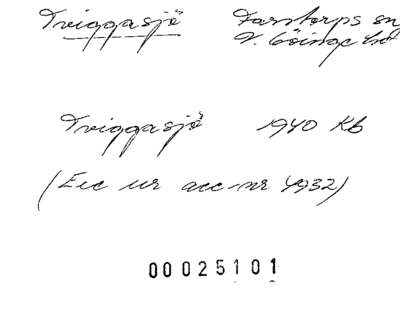 Tviggasjö Farstorps sn
V. Göinge hd
Tviggasjö 1940 Kb
(Exc ur acc-nr 4932)
00025101